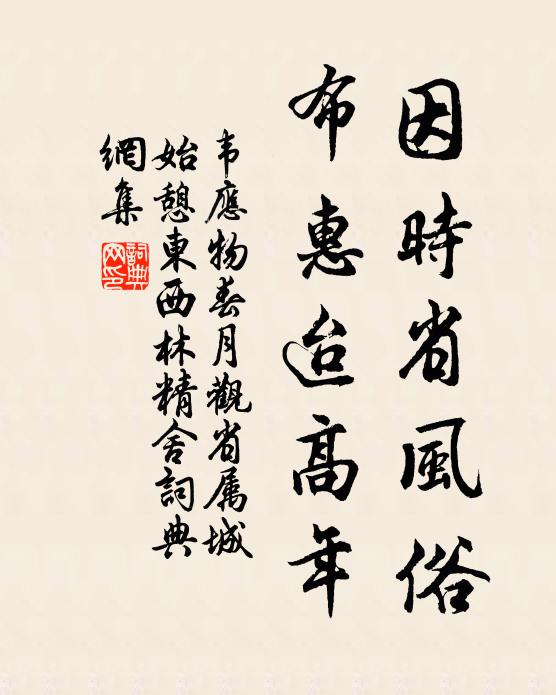 因時省風俗
布惠迨高年
韦應物春月觀省属城
始憩東西林精舍詞典
網集
詞典
网印